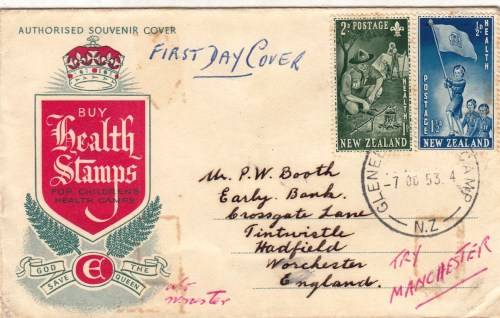 AUTHORISED SOUVENIR COVER
FIRST DAY COVER
BUY
Health
Stamps
FOR CHILDREN'S
HEALTH CAMPS
GOD SAVE THE QUEEN
E
2d POSTAGE
HEALTH 1d
NEW ZEALAND
½d
HEALTH
POSTAGE
1½d
NEW ZEALAND
CAMP
-7 OC 53. 4
N.Z
Mr. P.W. Booth
Early Bank.
Crossgate Lane
Tintwistle
Hadfield
Worchester
England.
TRY
MANCHESTER